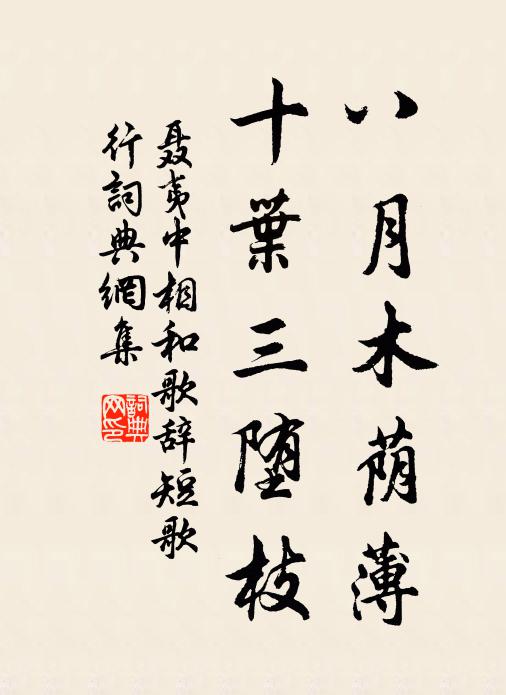 八月木荫薄
十葉三堕枝
聂夷中相和歌辞短歌
行詞典網集
詞典
网印